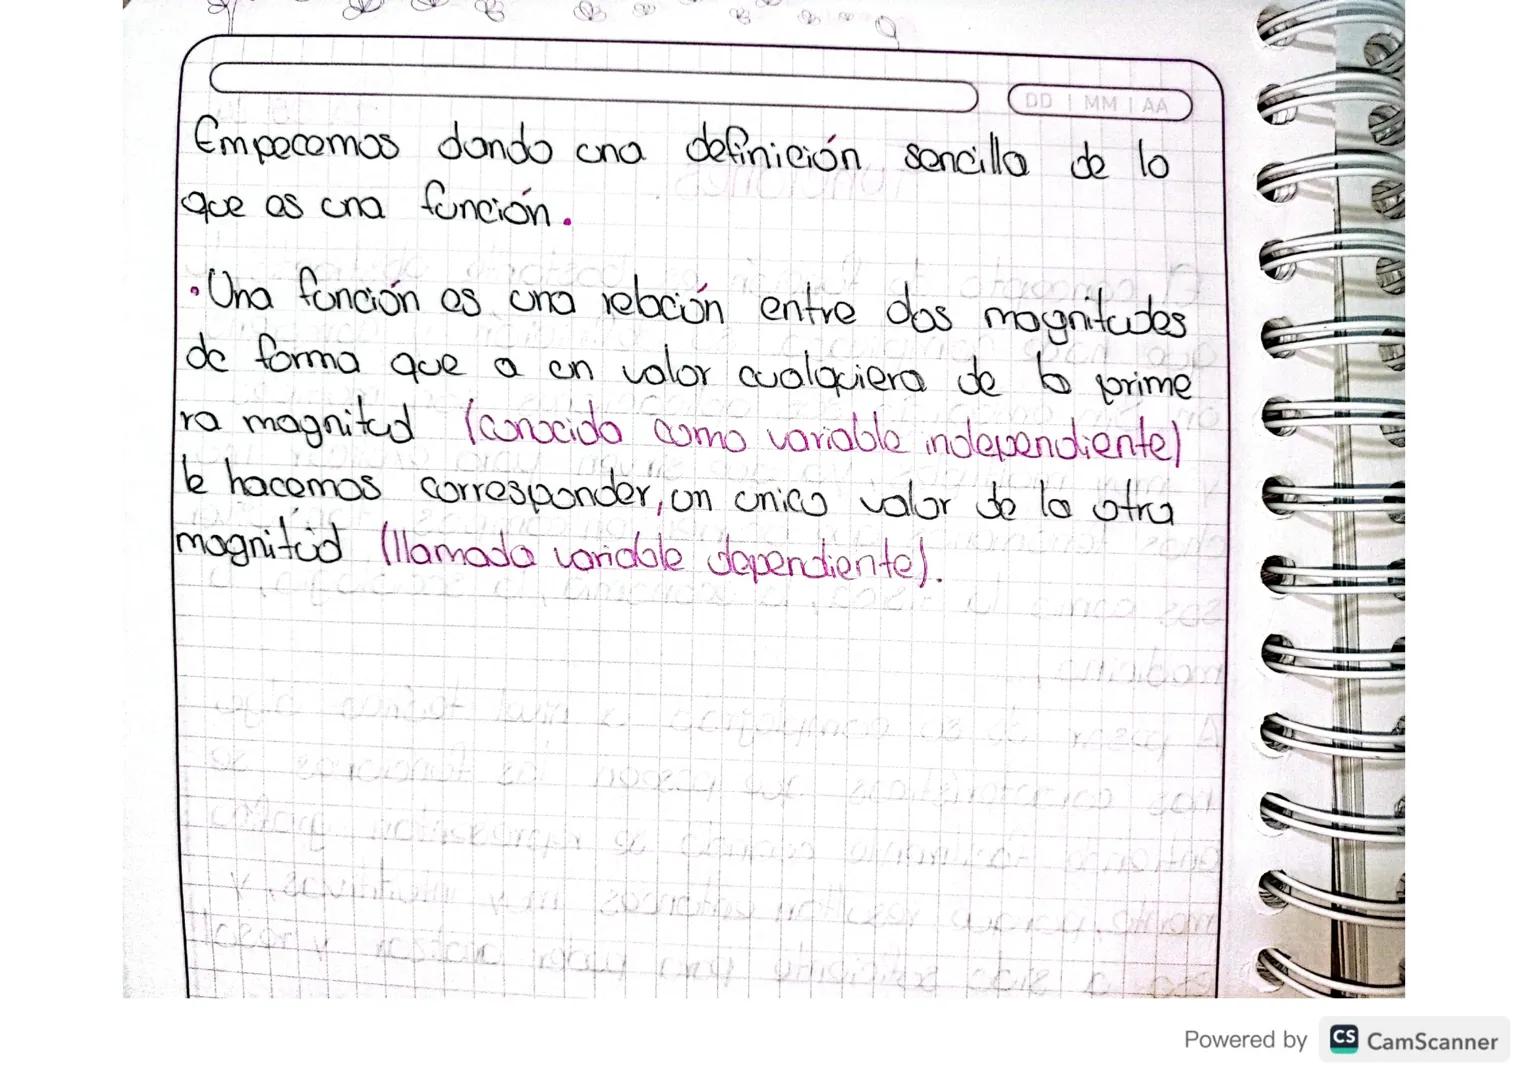 DD | MM | AA
Empecemos dando una definición sencilla de lo
que es una función.
• Una función es una relación entre dos magnitudes
de forma que a un valor cualquiera de la prime
ra magnitud (conocida como variable independiente)
le hacemos corresponder, un unico valor de la otra
magnitud (llamada variable dependiente).
Powered by CS CamScanner